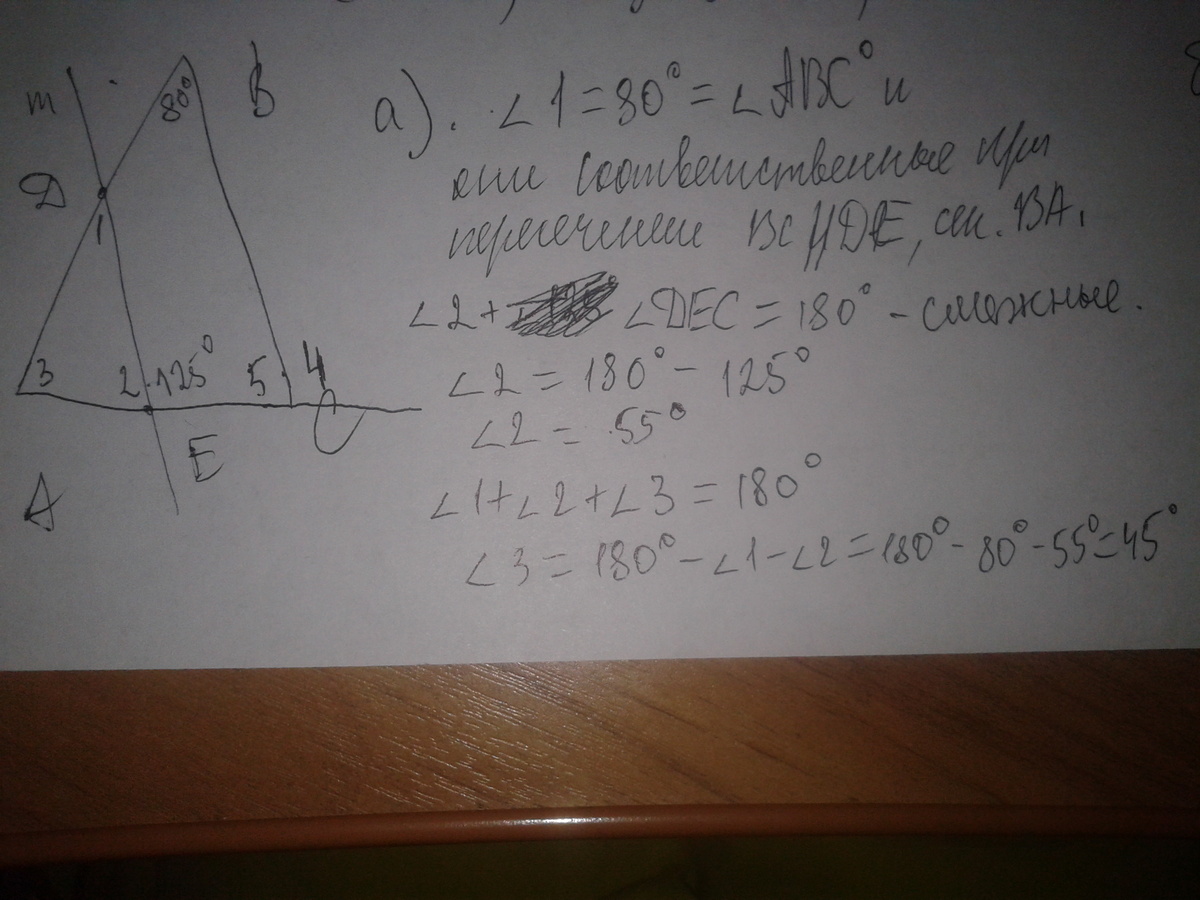 m
80°
B
D
1
3
2
125°
5
4
E
A
C
а). ∠1 = 80° = ∠ABC° и
они соответственные при
пересечении BC ∥ DE, сек. BA.
∠2 + ∠DEC = 180° - смежные.
∠2 = 180° - 125°
∠2 = 55°
∠1 + ∠2 + ∠3 = 180°
∠3 = 180° - ∠1 - ∠2 = 180° - 80° - 55° = 45°